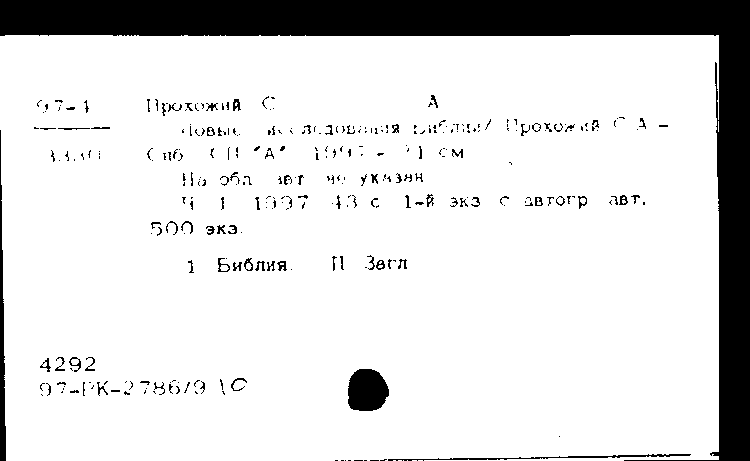 97-4 Прохожий С А
Новые исследования Библии/ Прохожий С А -
3330 Спб СП "А" 1997 - 21 см
На обл авт не указан
Ч 1 1997 48 с 1-й экз с автогр авт.
500 экз.
1 Библия. П Загл
4292
97-РК-2786/9 10